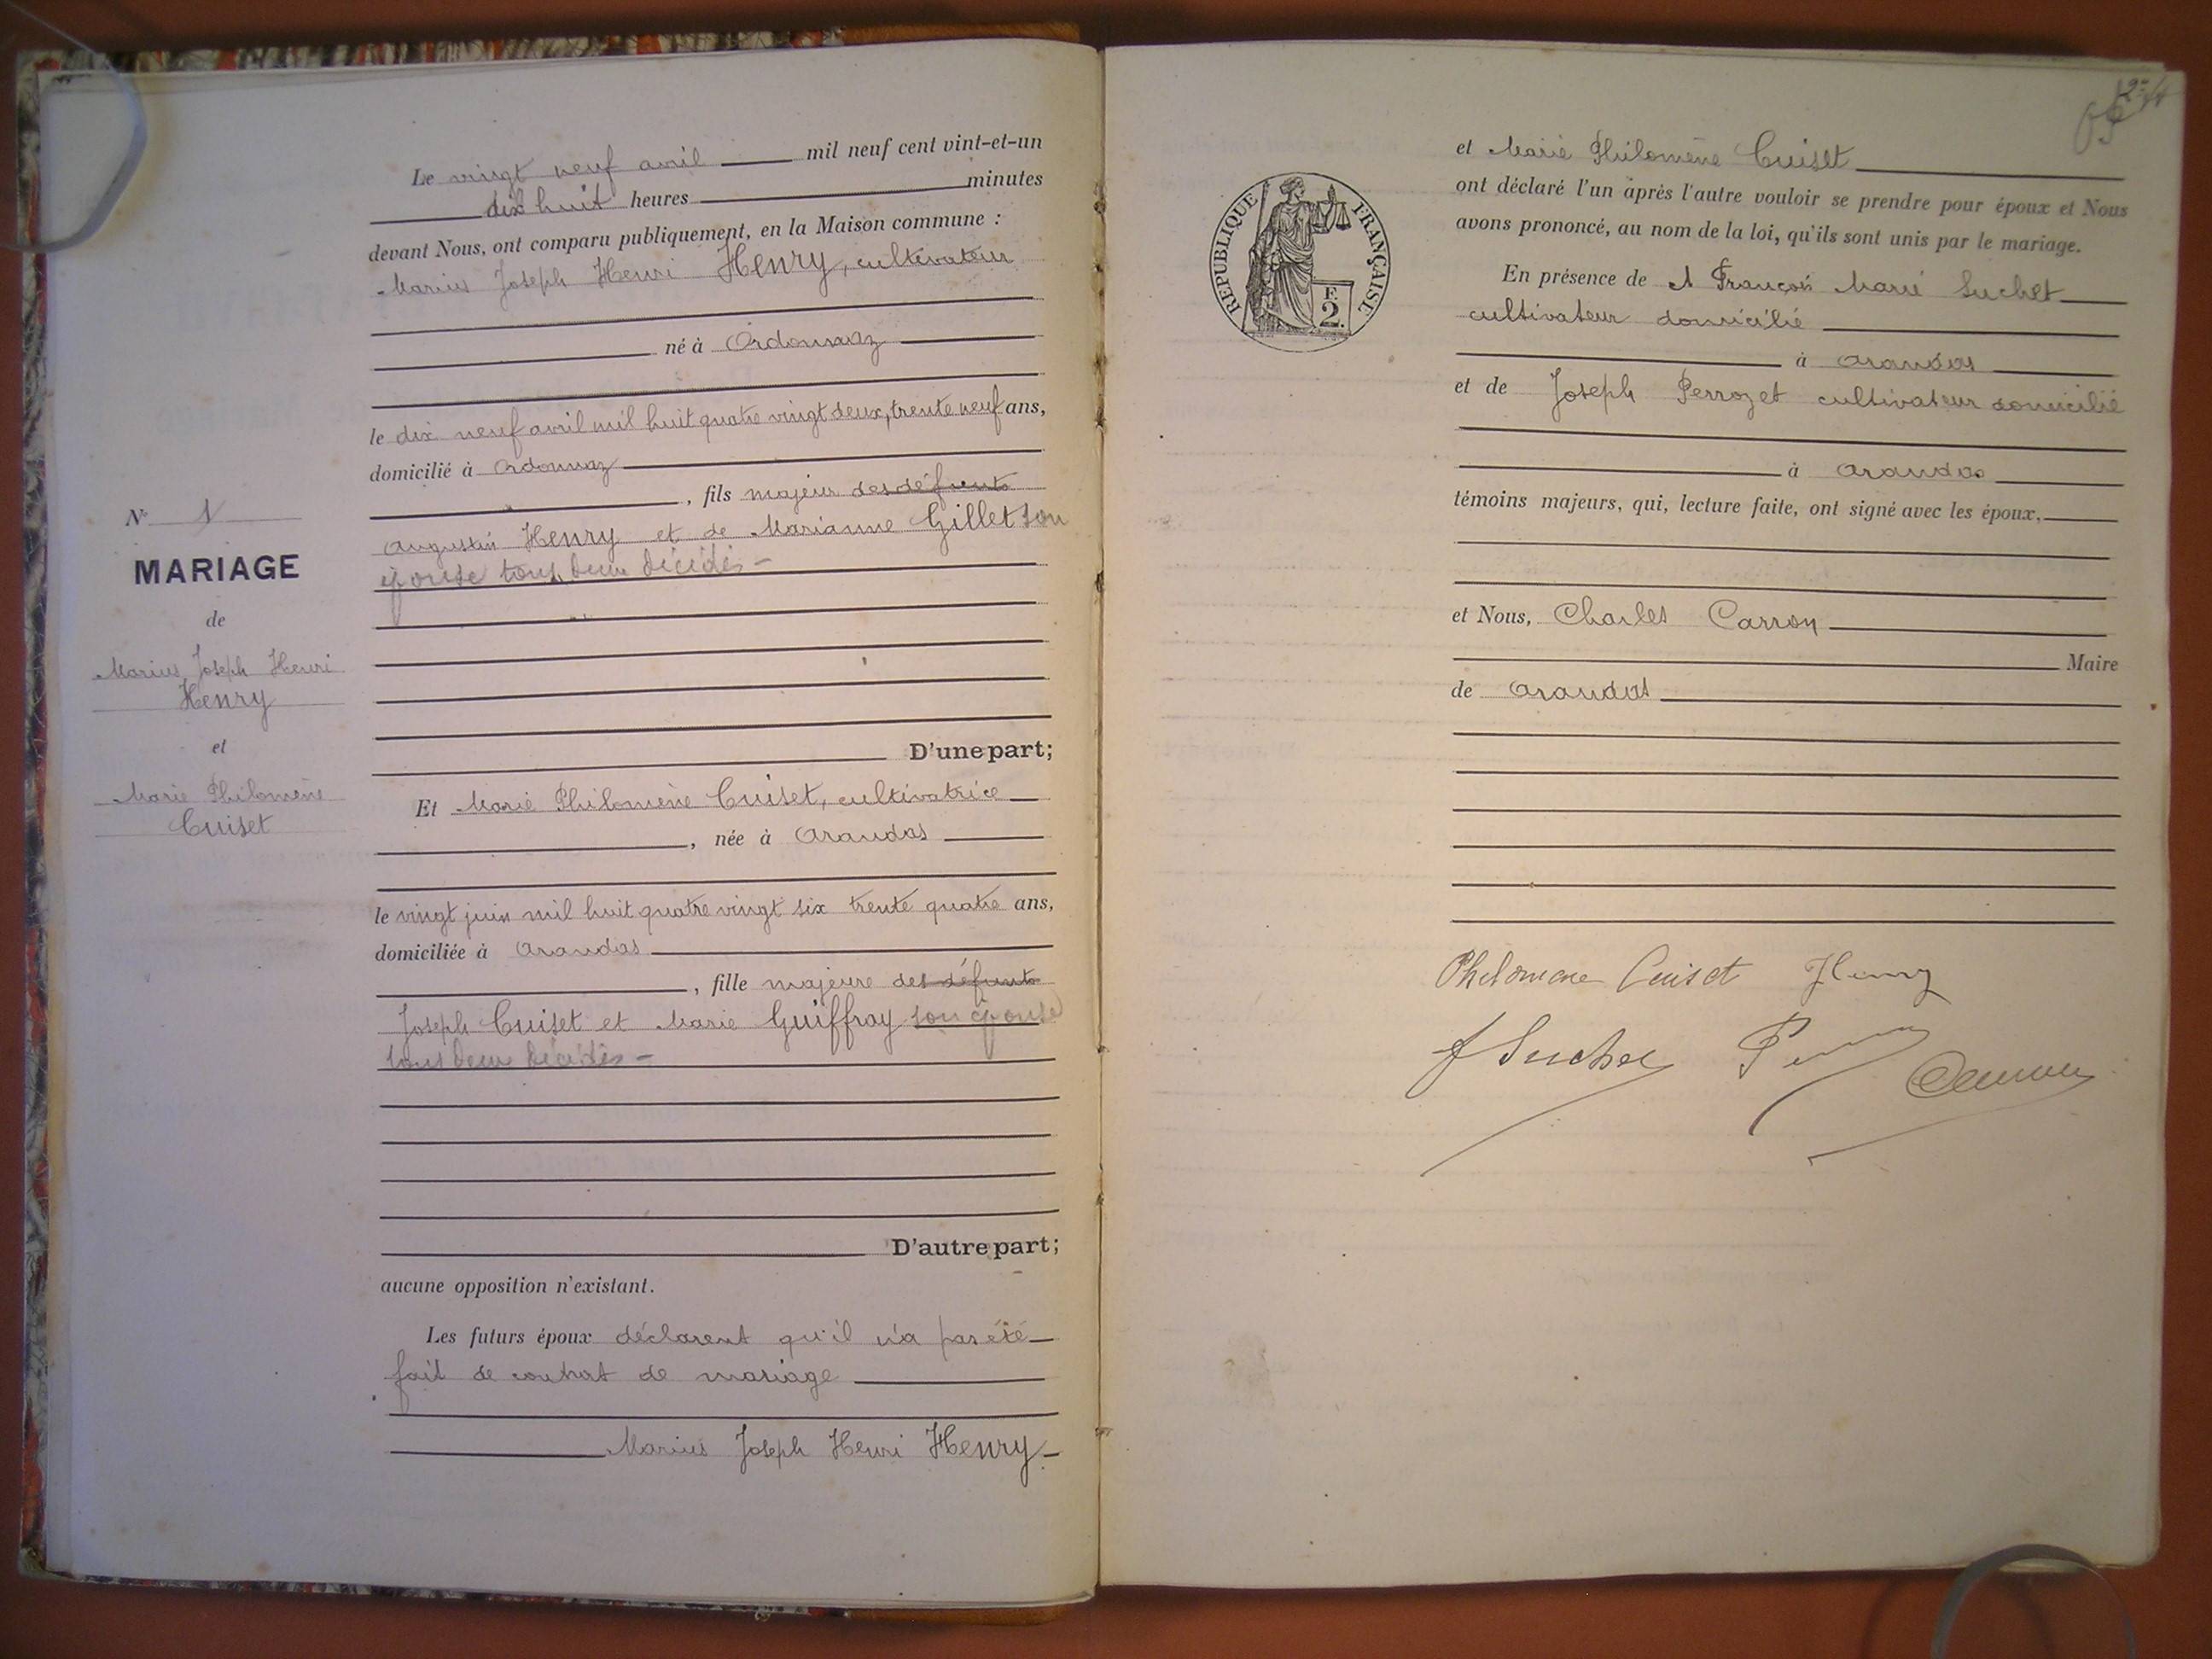 Le vingt neuf avril mil neuf cent vint-et-un
dix huit heures minutes
devant Nous, ont comparu publiquement, en la Maison commune :
Marius Joseph Henri Henry, cultivateur
né à Ordonnaz
le dix neuf avril mil huit quatre vingt deux, trente neuf ans,
domicilié à Ordonnaz
, fils majeur des défunts
Augustin Henry et de Marianne Gillet son
épouse tous deux décédés -
N° 1
MARIAGE
de
Marius Joseph Henri
Henry
et
Marie Philomène
Cuiset
D'une part;
Et Marie Philomène Cuiset, cultivatrice
, née à Arandas
le vingt juin mil huit quatre vingt six trente quatre ans,
domiciliée à Arandas
, fille majeure des défunts
Joseph Cuiset et Marie Guiffray son épouse
tous deux décédés -
D'autre part;
aucune opposition n'existant.
Les futurs époux déclarent qu'il n'a pas été
fait de contrat de mariage
Marius Joseph Henri Henry
et Marie Philomène Cuiset
ont déclaré l'un après l'autre vouloir se prendre pour époux et Nous
avons prononcé, au nom de la loi, qu'ils sont unis par le mariage.
RÉPUBLIQUE FRANÇAISE
F.
2.
En présence de François Marie Suchet
cultivateur domicilié
à Arandas
et de Joseph Perrozet cultivateur domicilié
à Arandas
témoins majeurs, qui, lecture faite, ont signé avec les époux.
et Nous, Charles Carron
Maire
de Arandas
Philomene Cuiset Henry
f Suchet